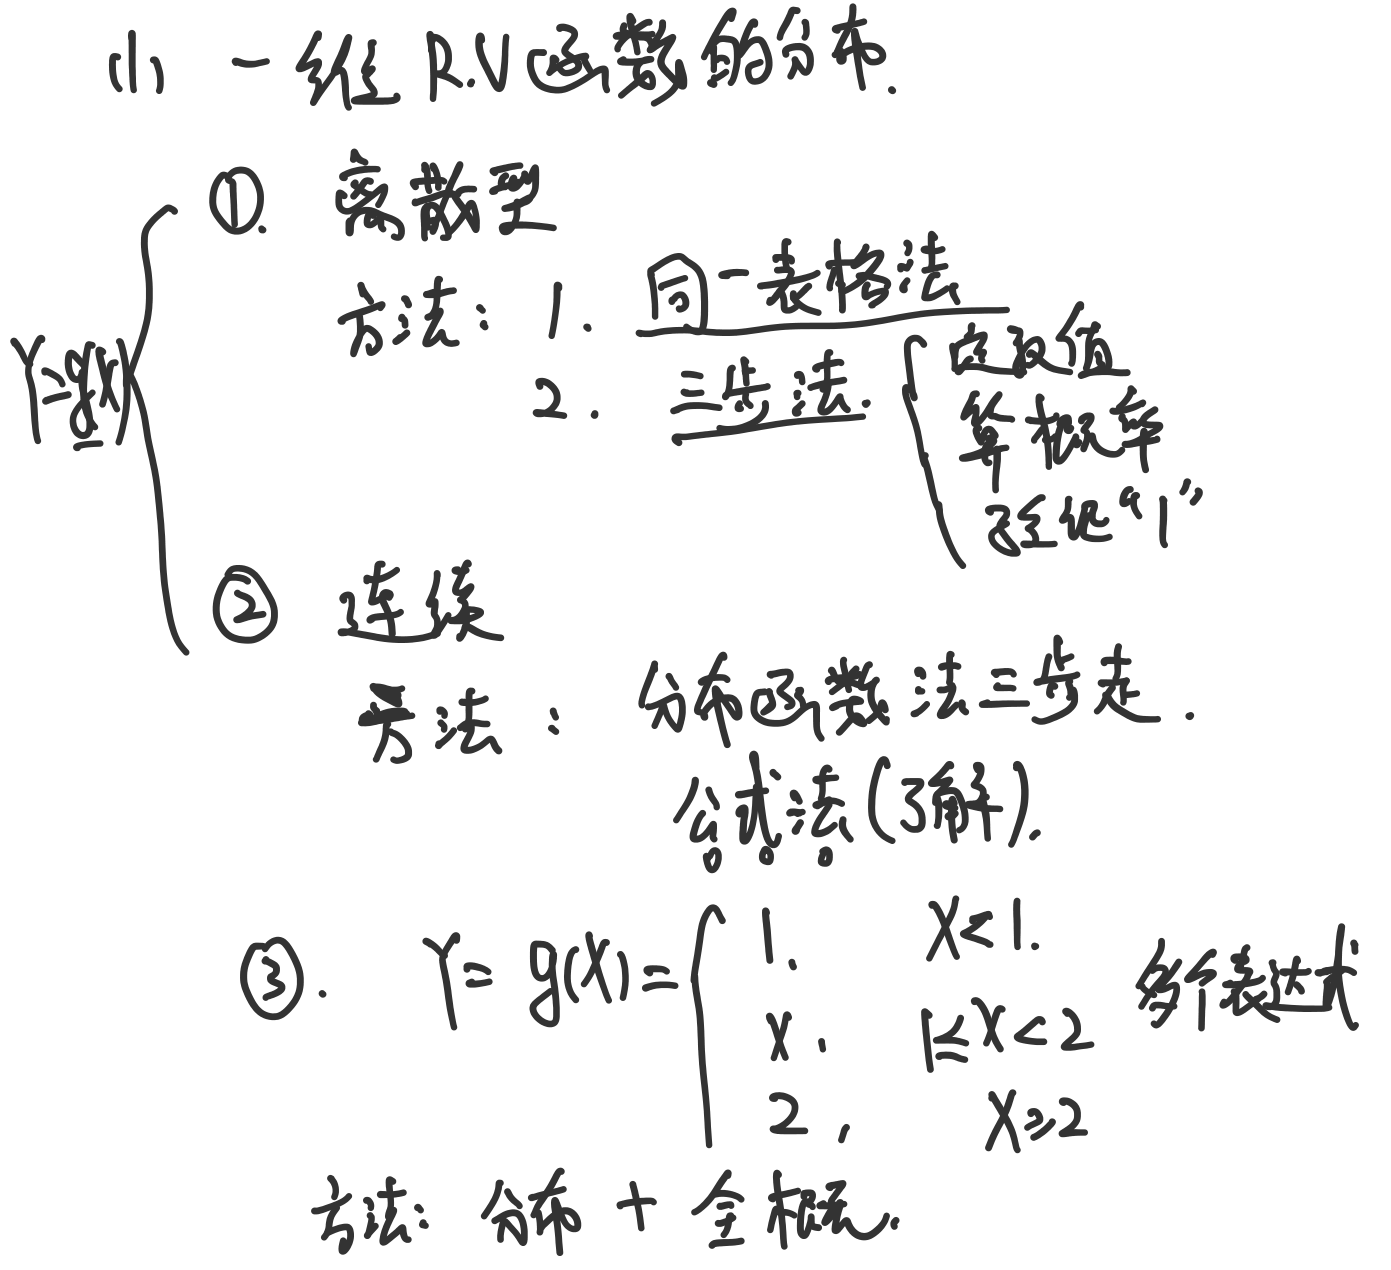 (1) 一维 R.V 函数的分布.
①. 离散型
方法: 1. 同一表格法
2. 三步法. { 定取值
算概率
验证“1”
Y=g(X)
② 连续
方法: 分布函数法三步走.
公式法(了解).
③. Y= g(X) = { 1. X<1.
X. 1≤X<2 多个表达式
2, X≥2
方法: 分布 + 全概.